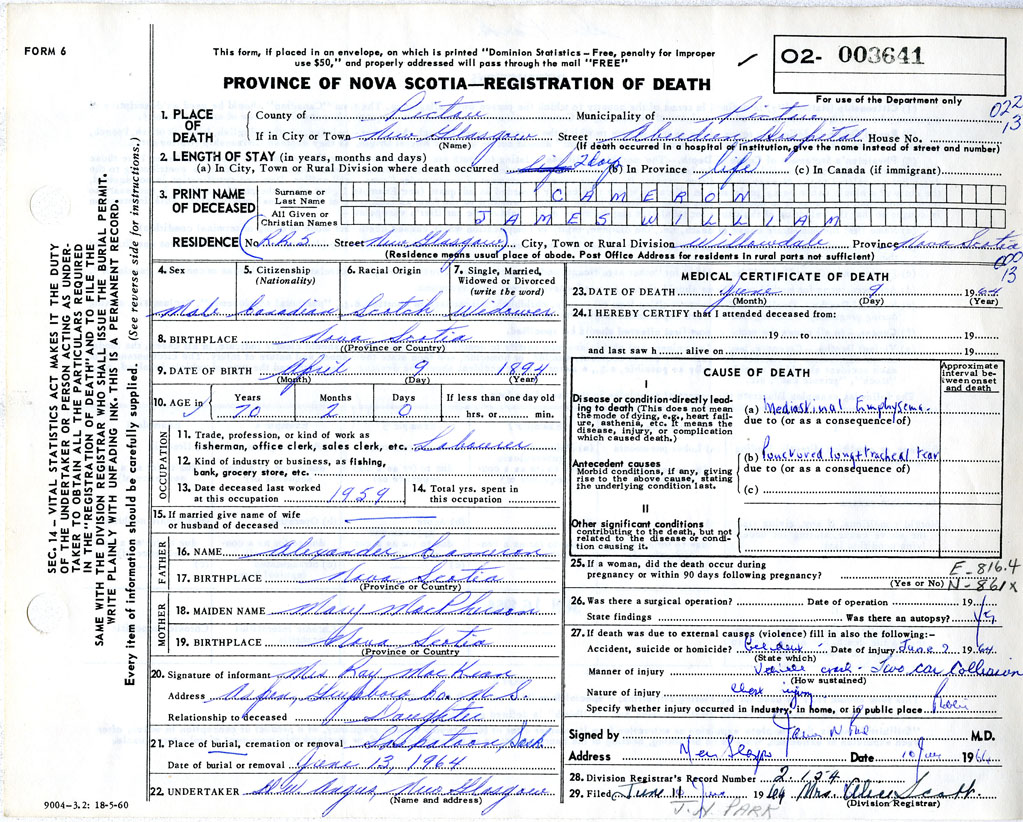 FORM 6
This form, if placed in an envelope, on which is printed "Dominion Statistics – Free, penalty for improper
use $50," and properly addressed will pass through the mail "FREE"
✓
O2- 003641
PROVINCE OF NOVA SCOTIA—REGISTRATION OF DEATH
For use of the Department only
022
13
1. PLACE OF DEATH
County of Pictou Municipality of Pictou
If in City or Town New Glasgow Street Aberdeen Hospital House No.
(Name) (If death occurred in a hospital or institution, give the name instead of street and number)
2. LENGTH OF STAY (in years, months and days)
(a) In City, Town or Rural Division where death occurred life 2 days (b) In Province life (c) In Canada (if immigrant)
3. PRINT NAME OF DECEASED
Surname or Last Name CAMERON
All Given or Christian Names JAMES WILLIAM
RESIDENCE (No. R.R.5 Street New Glasgow) City, Town or Rural Division Willowdale Province Nova Scotia
(Residence means usual place of abode. Post Office Address for residents in rural parts not sufficient)
000
13
4. Sex
Male
5. Citizenship (Nationality)
Canadian
6. Racial Origin
Scotch
7. Single, Married, Widowed or Divorced (write the word)
Widower
8. BIRTHPLACE Nova Scotia
(Province or Country)
9. DATE OF BIRTH April 9 1894
(Month) (Day) (Year)
10. AGE in
Years Months Days If less than one day old
70 2 0 hrs. or min.
OCCUPATION
11. Trade, profession, or kind of work as
fisherman, office clerk, sales clerk, etc. Labourer
12. Kind of industry or business, as fishing,
bank, grocery store, etc.
13. Date deceased last worked at this occupation 1959
14. Total yrs. spent in this occupation
15. If married give name of wife
or husband of deceased
FATHER
16. NAME Alexander Cameron
17. BIRTHPLACE Nova Scotia
(Province or Country)
MOTHER
18. MAIDEN NAME Mary MacPherson
19. BIRTHPLACE Nova Scotia
(Province or Country)
20. Signature of informant Mrs Ray MacKeen
Address Aspen, Guysboro Co. N S
Relationship to deceased Daughter
21. Place of burial, cremation or removal Saskatoon, Sask
Date of burial or removal June 13, 1964
22. UNDERTAKER H W Angus, New Glasgow
(Name and address)
9004–3.2: 18-5-60
MEDICAL CERTIFICATE OF DEATH
23. DATE OF DEATH June 9 1964
(Month) (Day) (Year)
24. I HEREBY CERTIFY that I attended deceased from:
19 to 19
and last saw h alive on 19
CAUSE OF DEATH
Approximate interval between onset and death
I
Disease or condition directly leading to death (This does not mean the mode of dying, e.g., heart failure, asthenia, etc. It means the disease, injury, or complication which caused death.)
(a) Mediastinal Emphysema
due to (or as a consequence of)
Antecedent causes
Morbid conditions, if any, giving rise to the above cause, stating the underlying condition last.
(b) Punctured lung + tracheal tear
due to (or as a consequence of)
(c)
II
Other significant conditions
contributing to the death, but not related to the disease or condition causing it.
25. If a woman, did the death occur during
pregnancy or within 90 days following pregnancy?
(Yes or No)
E-816.4
N-861x
26. Was there a surgical operation? Date of operation 19
State findings Was there an autopsy? Yes
27. If death was due to external causes (violence) fill in also the following:–
Accident, suicide or homicide? Accident Date of injury June 7 1964
(State which)
Manner of injury Vehicle crash - Two car Collision
(How sustained)
Nature of injury Chest injury
Specify whether injury occurred in industry, in home, or in public place
Signed by M.D.
Address New Glasgow Date 10 June 1964
28. Division Registrar's Record Number 2 154
29. Filed June 11 1964 Mrs. Alice Scott
(Division Registrar)
J. N. PARK
SEC. 14 – VITAL STATISTICS ACT MAKES IT THE DUTY
OF THE UNDERTAKER OR PERSON ACTING AS UNDER-
TAKER TO OBTAIN ALL THE PARTICULARS REQUIRED
IN THE "REGISTRATION OF DEATH" AND TO FILE THE
SAME WITH THE DIVISION REGISTRAR WHO SHALL ISSUE THE BURIAL PERMIT.
WRITE PLAINLY WITH UNFADING INK. THIS IS A PERMANENT RECORD.
Every item of information should be carefully supplied. (See reverse side for instructions.)